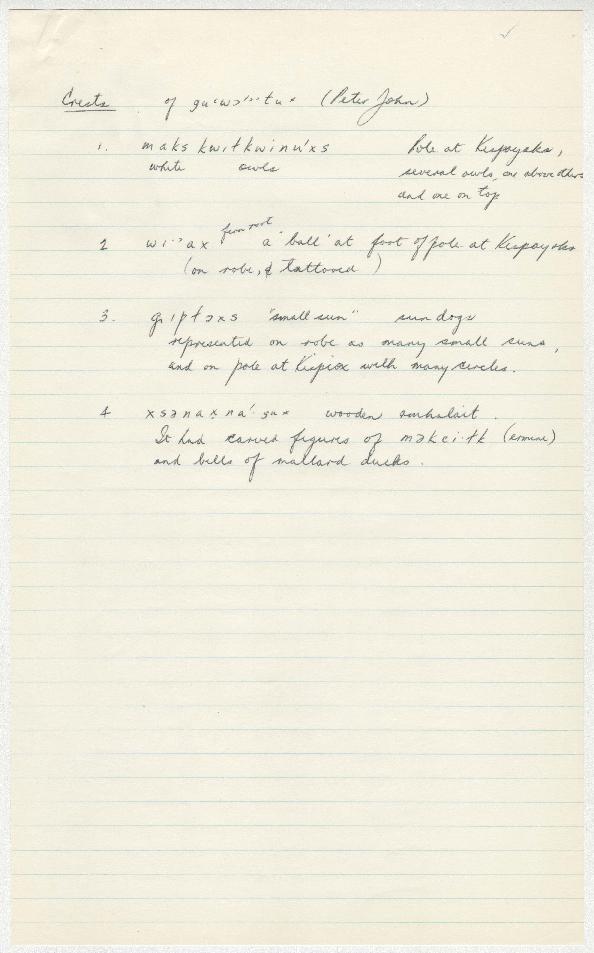 Crests of gu·wɔ'··tu× (Peter John)
1. maks kwitkwinu'xs Pole at Kispayaks,
white owls several owls, one above others
and one on top
2 wi·'ax fern root a 'ball' at foot of pole at Kispayaks
(on robe, & tattooed)
3. giptəxs "small sun" sun dogs
represented on robe as many small suns,
and on pole at Kispiox with many circles.
4 xsənax̣na'·gax wooden amhalait.
It had carved figures of məkci·tk (ermine)
and bills of mallard ducks.